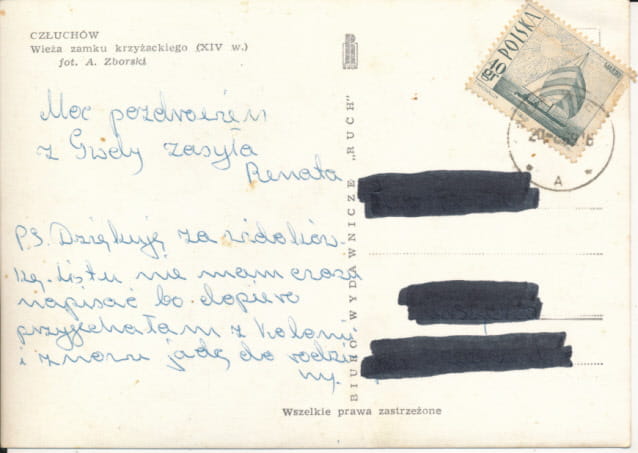 CZŁUCHÓW
Wieża zamku krzyżackiego (XIV w.)
fot. A. Zborski
Moc pozdrowień
z Gwdy zasyła
Renata
P.S. Dziękuję za widoków-
kę. Listu nie mam czasu
napisać bo dopiero
przyjechałam z kolonii
i znowu jadę do rodzi
ny.
BIURO WYDAWNICZE "RUCH"
POLSKA
40 gr
A
Wszelkie prawa zastrzeżone